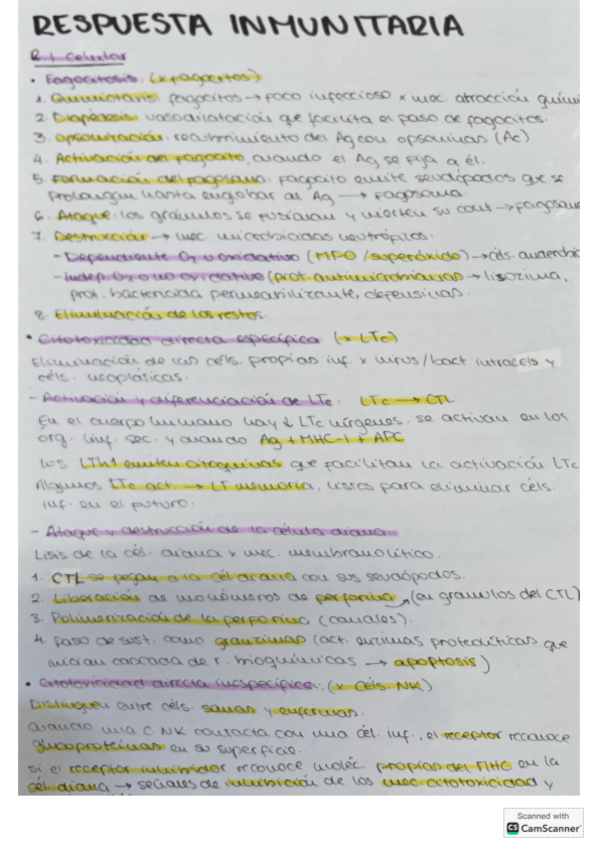 RESPUESTA INMUNITARIA
R.I. Celular
• Fagocitosis: (x fagocitos)
1. Quimiotaxis: fagocitos → foco infeccioso x mec. atracción quími
2. Diapédesis: vasodilatación que facilita el paso de fagocitos.
3. Opsonización: recubrimiento del Ag con opsoninas (Ac)
4. Activación del fagocito, cuando el Ag se fija a él.
5. Formación del fagosoma: fagocito emite seudópodos que se
prolongan hasta englobar al Ag → fagosoma.
6. Ataque: los gránulos se fusionan y vierten su cont → fagosom
7. Destrucción → mec. microbicidas neutrófilos:
- Dependiente O₂ u oxidativo (MPO/superóxido) → céls. anaerobi
- Indep. O₂ o no oxidativo (prot. antimicrobianas → lisozima,
prot. bactericida permeabilizante, defensivas.
8. Eliminación de los restos.
• Citotoxicidad directa específica (x LTc)
Eliminación de las céls. propias inf. x virus/bact intracels y
céls. neoplásicas.
- Activación y diferenciación de LTc: LTc → CTL
En el cuerpo humano hay ↓ LTc vírgenes. se activan en los
org. linf. sec. y cuando Ag + MHC-I + APC
los LTh1 emiten citoquinas que facilitan la activación LTc
Algunos LTc act. → LT memoria, listos para eliminar céls.
inf. en el futuro.
- Ataque y destrucción de la célula diana.
Lisis de la cél. diana x mec. membranolítico.
1. CTL se pegan a la cél diana con sus seudópodos.
2. Liberación de monómeros de perforina (en gránulos del CTL)
3. Polimerización de la perforina (canales).
4. Paso de sust. como granzimas (act. enzimas proteolíticas que
inician cascada de r. bioquímicas → apoptosis)
• Citotoxicidad directa inespecífica: (x céls. NK)
Distinguen entre céls. sanas y enfermas.
Cuando una C. NK contacta con una cél. inf., el receptor reconoce
glucoproteínas en su superficie.
Si el receptor inhibidor reconoce moléc. propias del MHC en la
cél diana → señales de inhibición de los mec citotoxicidad y
Scanned with
CS CamScanner